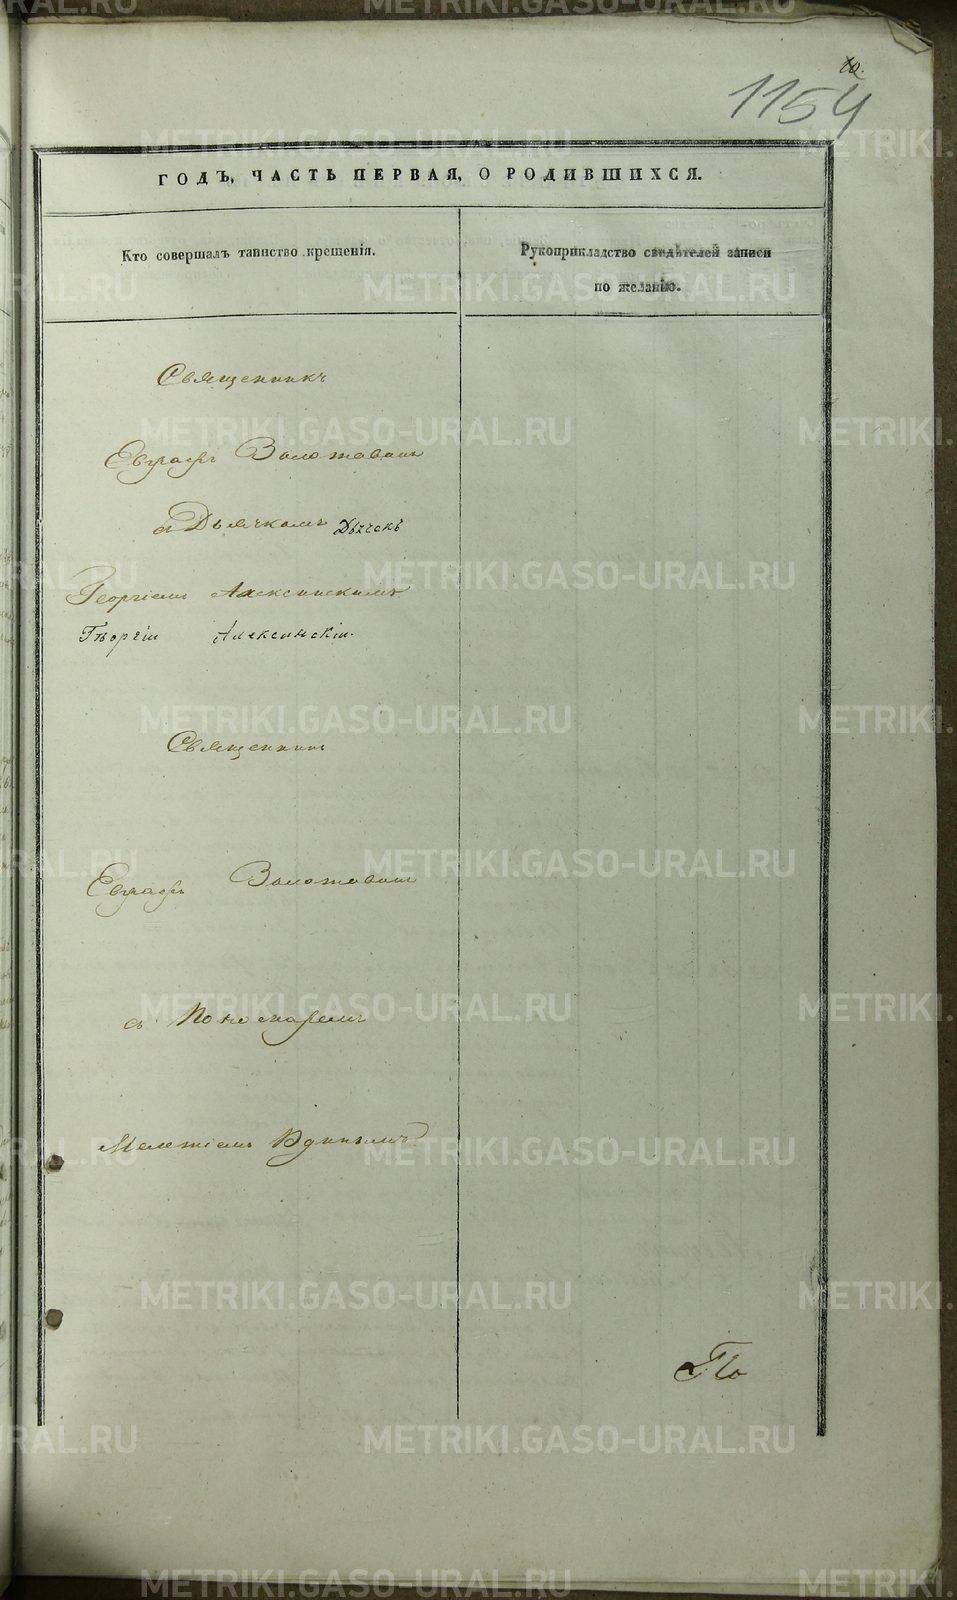 10.
1154
ГОДЪ, ЧАСТЬ ПЕРВАЯ, О РОДИВШИХСЯ.
Кто совершалъ таинство крещенія.
Рукоприкладство свидѣтелей записи
по желанію.
Священникъ
Евграфъ
съ Дьячкомъ Дьячекъ
Георгіемъ Алексинскимъ
Георгій Алексинскій.
Священникъ
Евграфъ
съ Пономаремъ
Мелетіемъ
По
METRIKI.GASO-URAL.RU